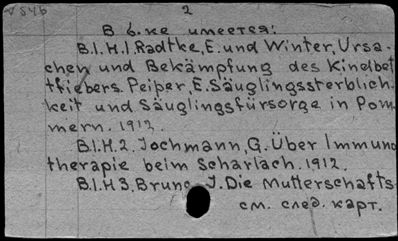 V 846 2
В б-ке имеется:
B.I.H.1. Radtke, E. und Winter, Ursa-
chen und Bekämpfung des Kindbet
tfiebers. Peiper, E. Säuglingssterblich-
keit und Säuglingsfürsorge in Pom
mern. 1912.
B.I.H.2. Jochmann, G. Über Immuno
therapie beim Scharlach. 1912.
B.I.H 3. Bruno J. Die Mutterschafts-
см. след. карт.